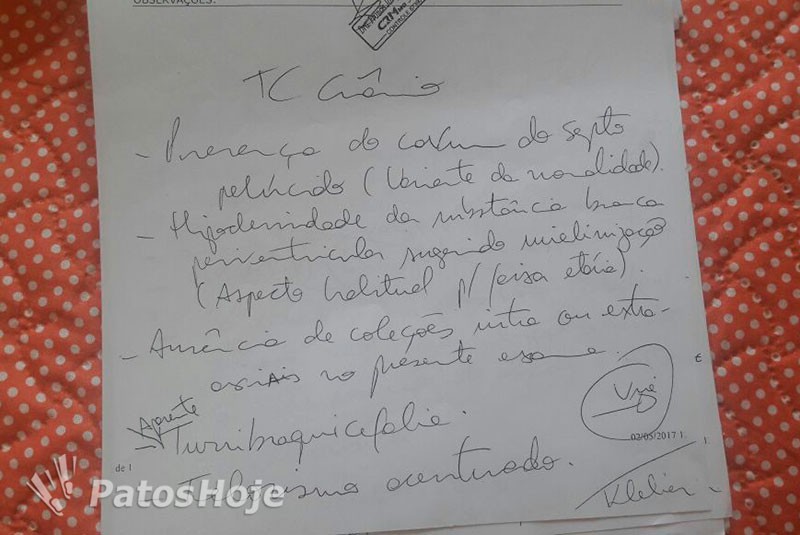 OBSERVAÇÕES:
TC Crânio
- Presença do cavum do septo
pelúcido (Variante da normalidade).
- Hipodensidade da substância branca
periventricular sugerindo mielinização
(Aspecto habitual p/ faixa etária).
- Ausência de coleções intra ou extra-
axiais no presente exame.
Aparente
- Turribraquicefalia.
- Telorismo acentuado.
02/05/2017 1
de 1
Kleber
PatosHoje